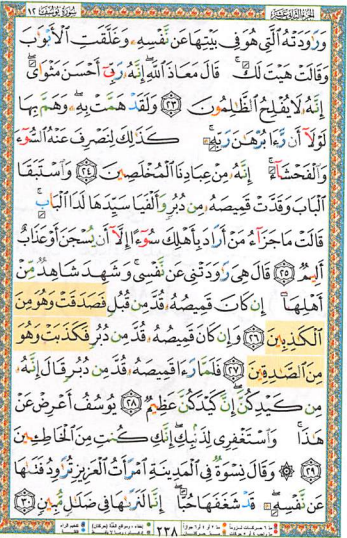 الجزء الثاني عشر
سورة يوسف ١٢
وَرَٰوَدَتْهُ ٱلَّتِى هُوَ فِى بَيْتِهَا عَن نَّفْسِهِۦ وَغَلَّقَتِ ٱلْأَبْوَٰبَ
وَقَالَتْ هَيْتَ لَكَ ۚ قَالَ مَعَاذَ ٱللَّهِ ۖ إِنَّهُۥ رَبِّىٓ أَحْسَنَ مَثْوَاىَ ۖ
إِنَّهُۥ لَا يُفْلِحُ ٱلظَّٰلِمُونَ ٢٣ وَلَقَدْ هَمَّتْ بِهِۦ ۖ وَهَمَّ بِهَا
لَوْلَآ أَن رَّءَا بُرْهَٰنَ رَبِّهِۦ ۚ كَذَٰلِكَ لِنَصْرِفَ عَنْهُ ٱلسُّوٓءَ
وَٱلْفَحْشَآءَ ۚ إِنَّهُۥ مِنْ عِبَادِنَا ٱلْمُخْلَصِينَ ٢٤ وَٱسْتَبَقَا
ٱلْبَابَ وَقَدَّتْ قَمِيصَهُۥ مِن دُبُرٍ وَأَلْفَيَا سَيِّدَهَا لَدَا ٱلْبَابِ ۚ
قَالَتْ مَا جَزَآءُ مَنْ أَرَادَ بِأَهْلِكَ سُوٓءًا إِلَّآ أَن يُسْجَنَ أَوْ عَذَابٌ
أَلِيمٌ ٢٥ قَالَ هِىَ رَٰوَدَتْنِى عَن نَّفْسِى ۚ وَشَهِدَ شَاهِدٌ مِّنْ
أَهْلِهَآ إِن كَانَ قَمِيصُهُۥ قُدَّ مِن قُبُلٍ فَصَدَقَتْ وَهُوَ مِنَ
ٱلْكَٰذِبِينَ ٢٦ وَإِن كَانَ قَمِيصُهُۥ قُدَّ مِن دُبُرٍ فَكَذَبَتْ وَهُوَ
مِنَ ٱلصَّٰدِقِينَ ٢٧ فَلَمَّا رَءَا قَمِيصَهُۥ قُدَّ مِن دُبُرٍ قَالَ إِنَّهُۥ
مِن كَيْدِكُنَّ ۖ إِنَّ كَيْدَكُنَّ عَظِيمٌ ٢٨ يُوسُفُ أَعْرِضْ عَنْ
هَٰذَا ۚ وَٱسْتَغْفِرِى لِذَنۢبِكِ ۖ إِنَّكِ كُنتِ مِنَ ٱلْخَاطِـِٔينَ
٢٩ ۞ وَقَالَ نِسْوَةٌ فِى ٱلْمَدِينَةِ ٱمْرَأَتُ ٱلْعَزِيزِ تُرَٰوِدُ فَتَىٰهَا
عَن نَّفْسِهِۦ ۖ قَدْ شَغَفَهَا حُبًّا ۖ إِنَّا لَنَرَىٰهَا فِى ضَلَٰلٍ مُّبِينٍ ٣٠
٢٣٨